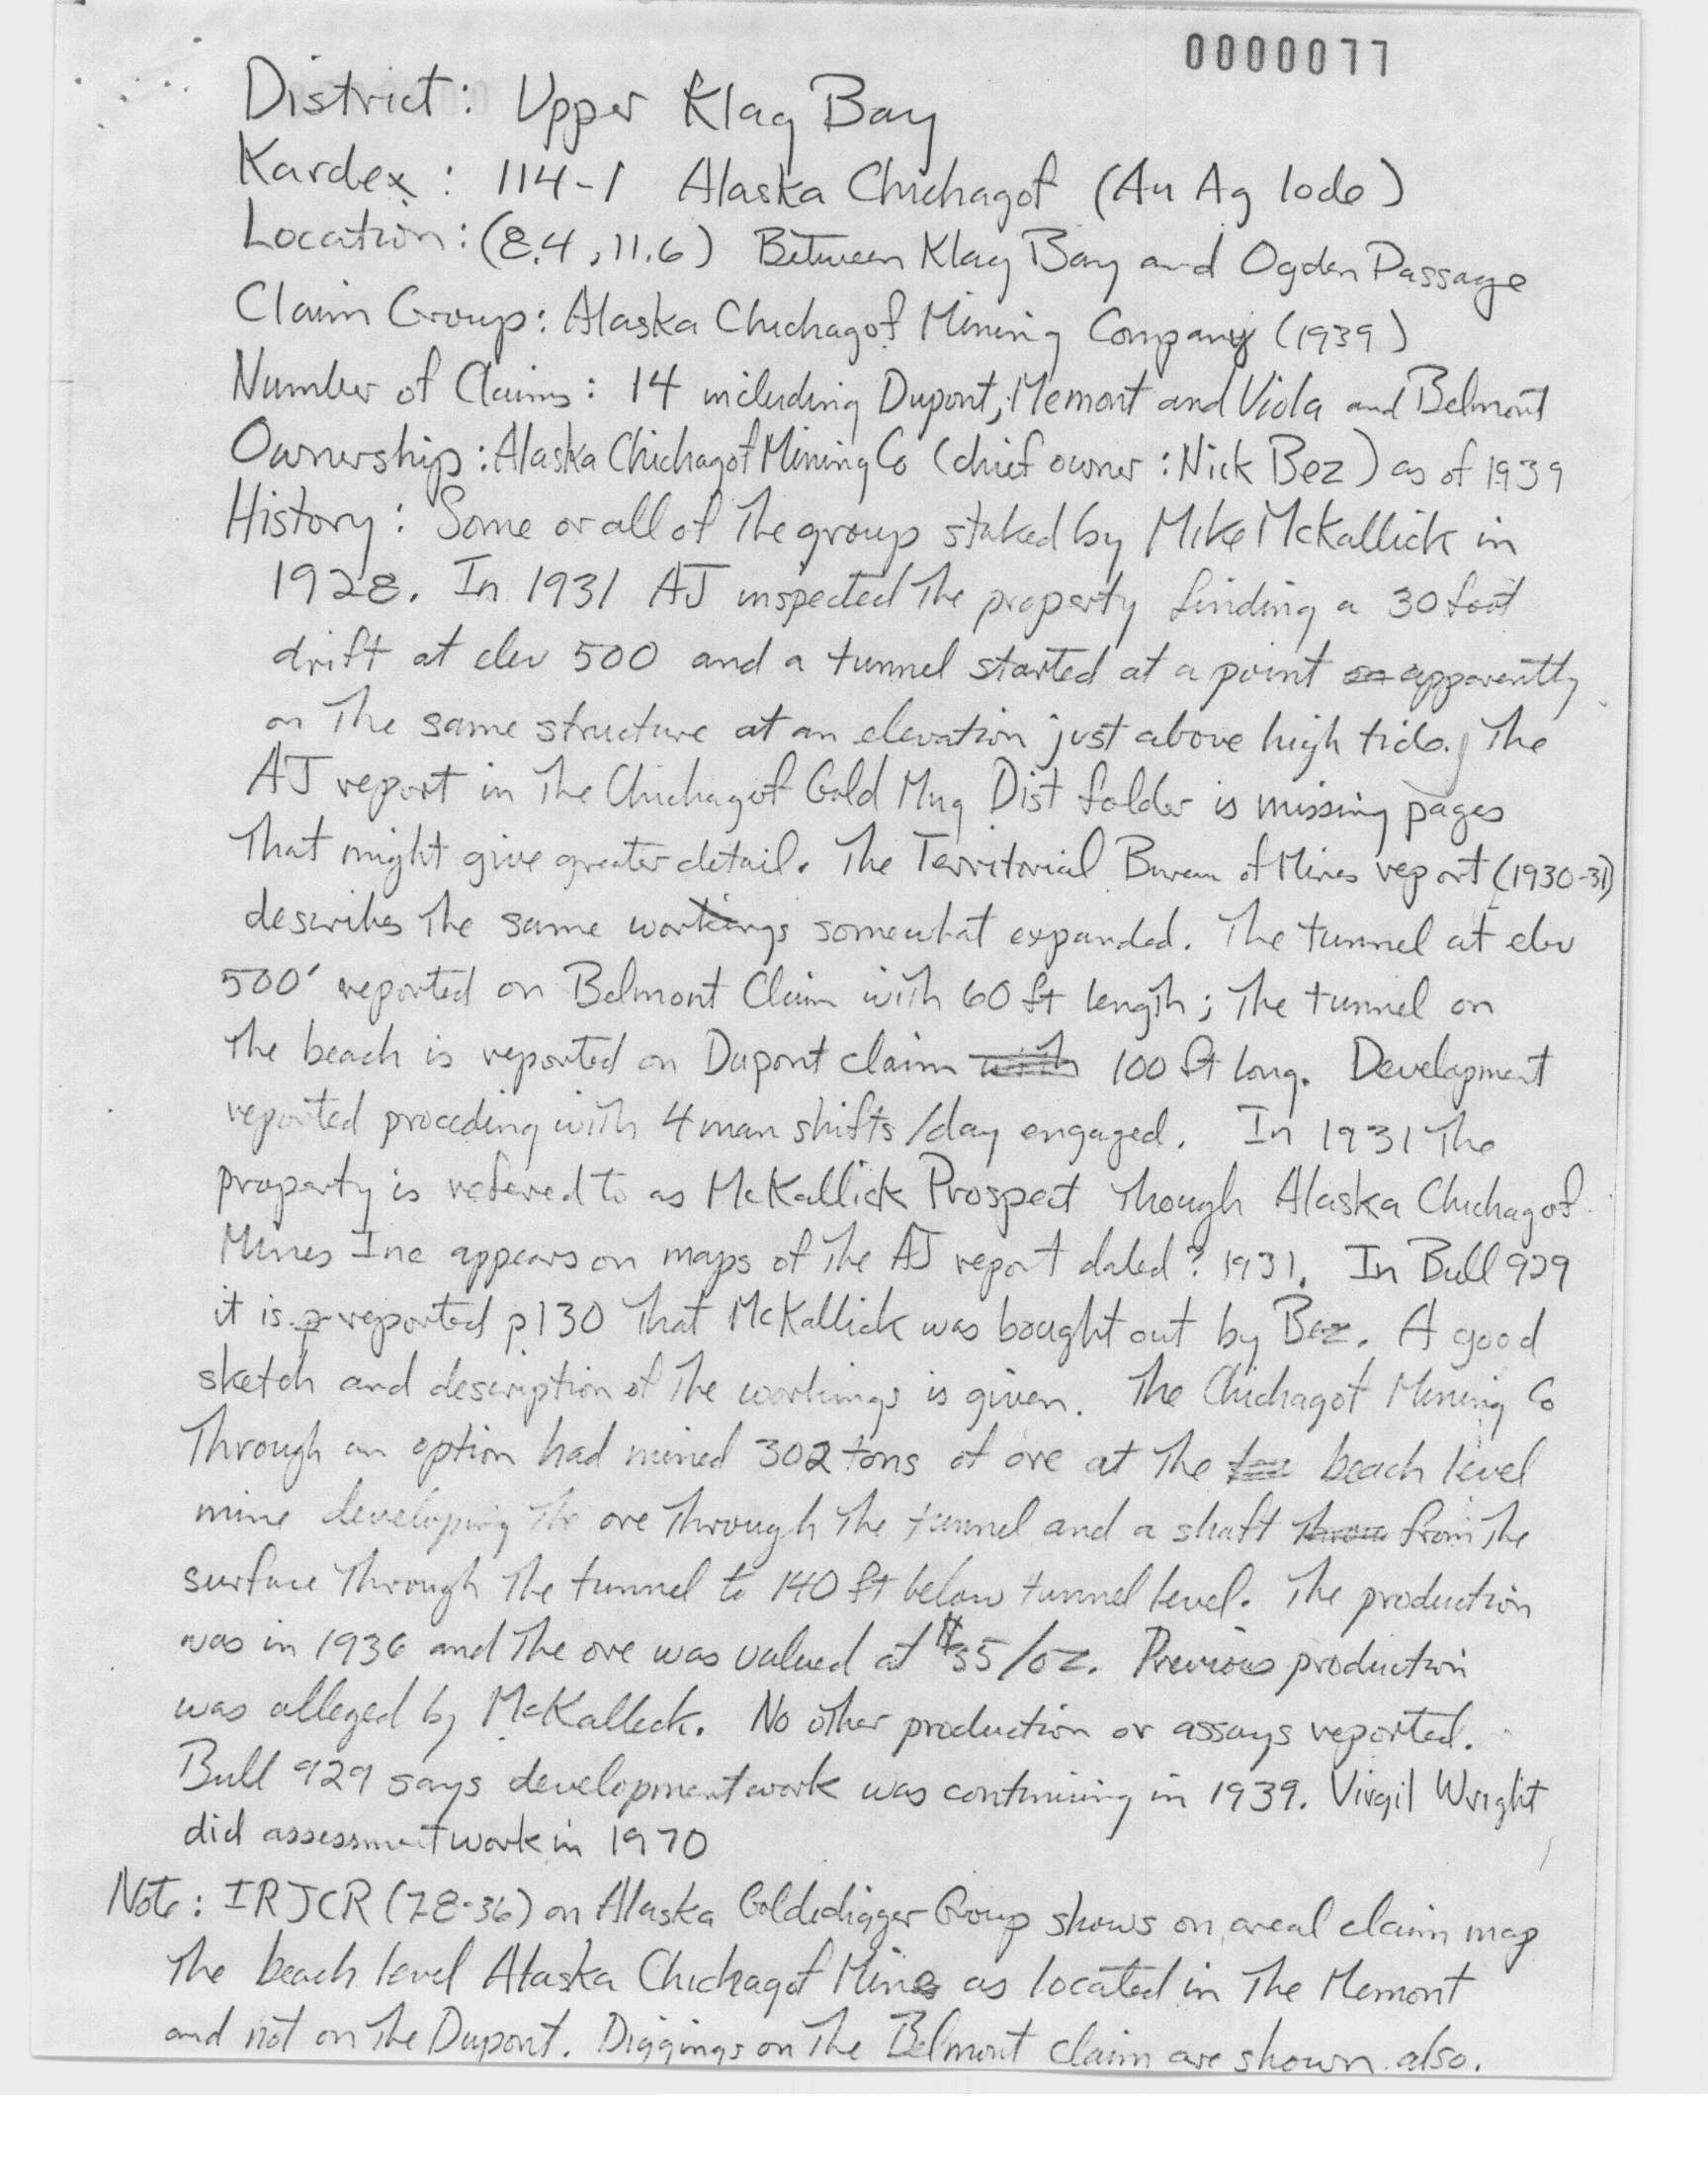 0000077
District: Upper Klag Bay
Kardex: 114-1 Alaska Chichagof (Au Ag lode)
Location: (8.4, 11.6) Between Klag Bay and Ogden Passage
Claim Group: Alaska Chichagof Mining Company (1939)
Number of Claims: 14 including Dupont, Memont and Viola and Belmont
Ownership: Alaska Chichagof Mining Co (chief owner: Nick Bez) as of 1939
History: Some or all of the group staked by Mike McKallick in
1928. In 1931 AJ inspected the property finding a 30 foot
drift at elev 500 and a tunnel started at a point apparently
on the same structure at an elevation just above high tide. The
AJ report in the Chichagof Gold Mng Dist folder is missing pages
that might give greater detail. The Territorial Bureau of Mines report (1930-31)
describes the same workings somewhat expanded. The tunnel at elev
500' reported on Belmont Claim with 60 ft length; the tunnel on
the beach is reported on Dupont claim 100 ft long. Development
reported proceding with 4 man shifts/day engaged. In 1931 the
property is refered to as McKallick Prospect though Alaska Chichagof
Mines Inc appears on maps of the AJ report dated? 1931. In Bull 929
it is reported p130 that McKallick was bought out by Bez. A good
sketch and description of the workings is given. The Chichagof Mining Co
through an option had mined 302 tons of ore at the beach level
mine developing the ore through the tunnel and a shaft from the
surface through the tunnel to 140 ft below tunnel level. The production
was in 1936 and the ore was valued at $35/oz. Previous production
was alleged by McKalleck. No other production or assays reported.
Bull 929 says development work was continuing in 1939. Virgil Wright
did assessment work in 1970
Note: IRJCR (78-36) on Alaska Goldedigger Group shows on areal claim map
the beach level Alaska Chichagof Mine as located in the Memont
and not on the Dupont. Diggings on the Belmont claim are shown also.